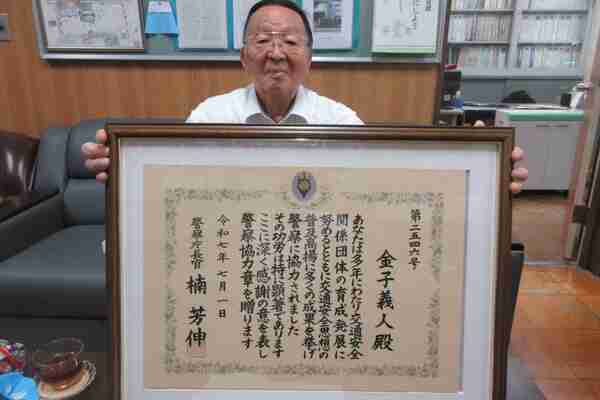 第二五四六号
金子義人殿
あなたは多年にわたり交通安全
関係団体の育成発展に
努めるとともに交通安全思想の
普及高揚に多くの成果を挙げ
警察に協力されました
その功労は特に顕著であります
ここに深く感謝の意を表し
警察協力章を贈ります
令和七年七月一日
警察庁長官 楠芳伸